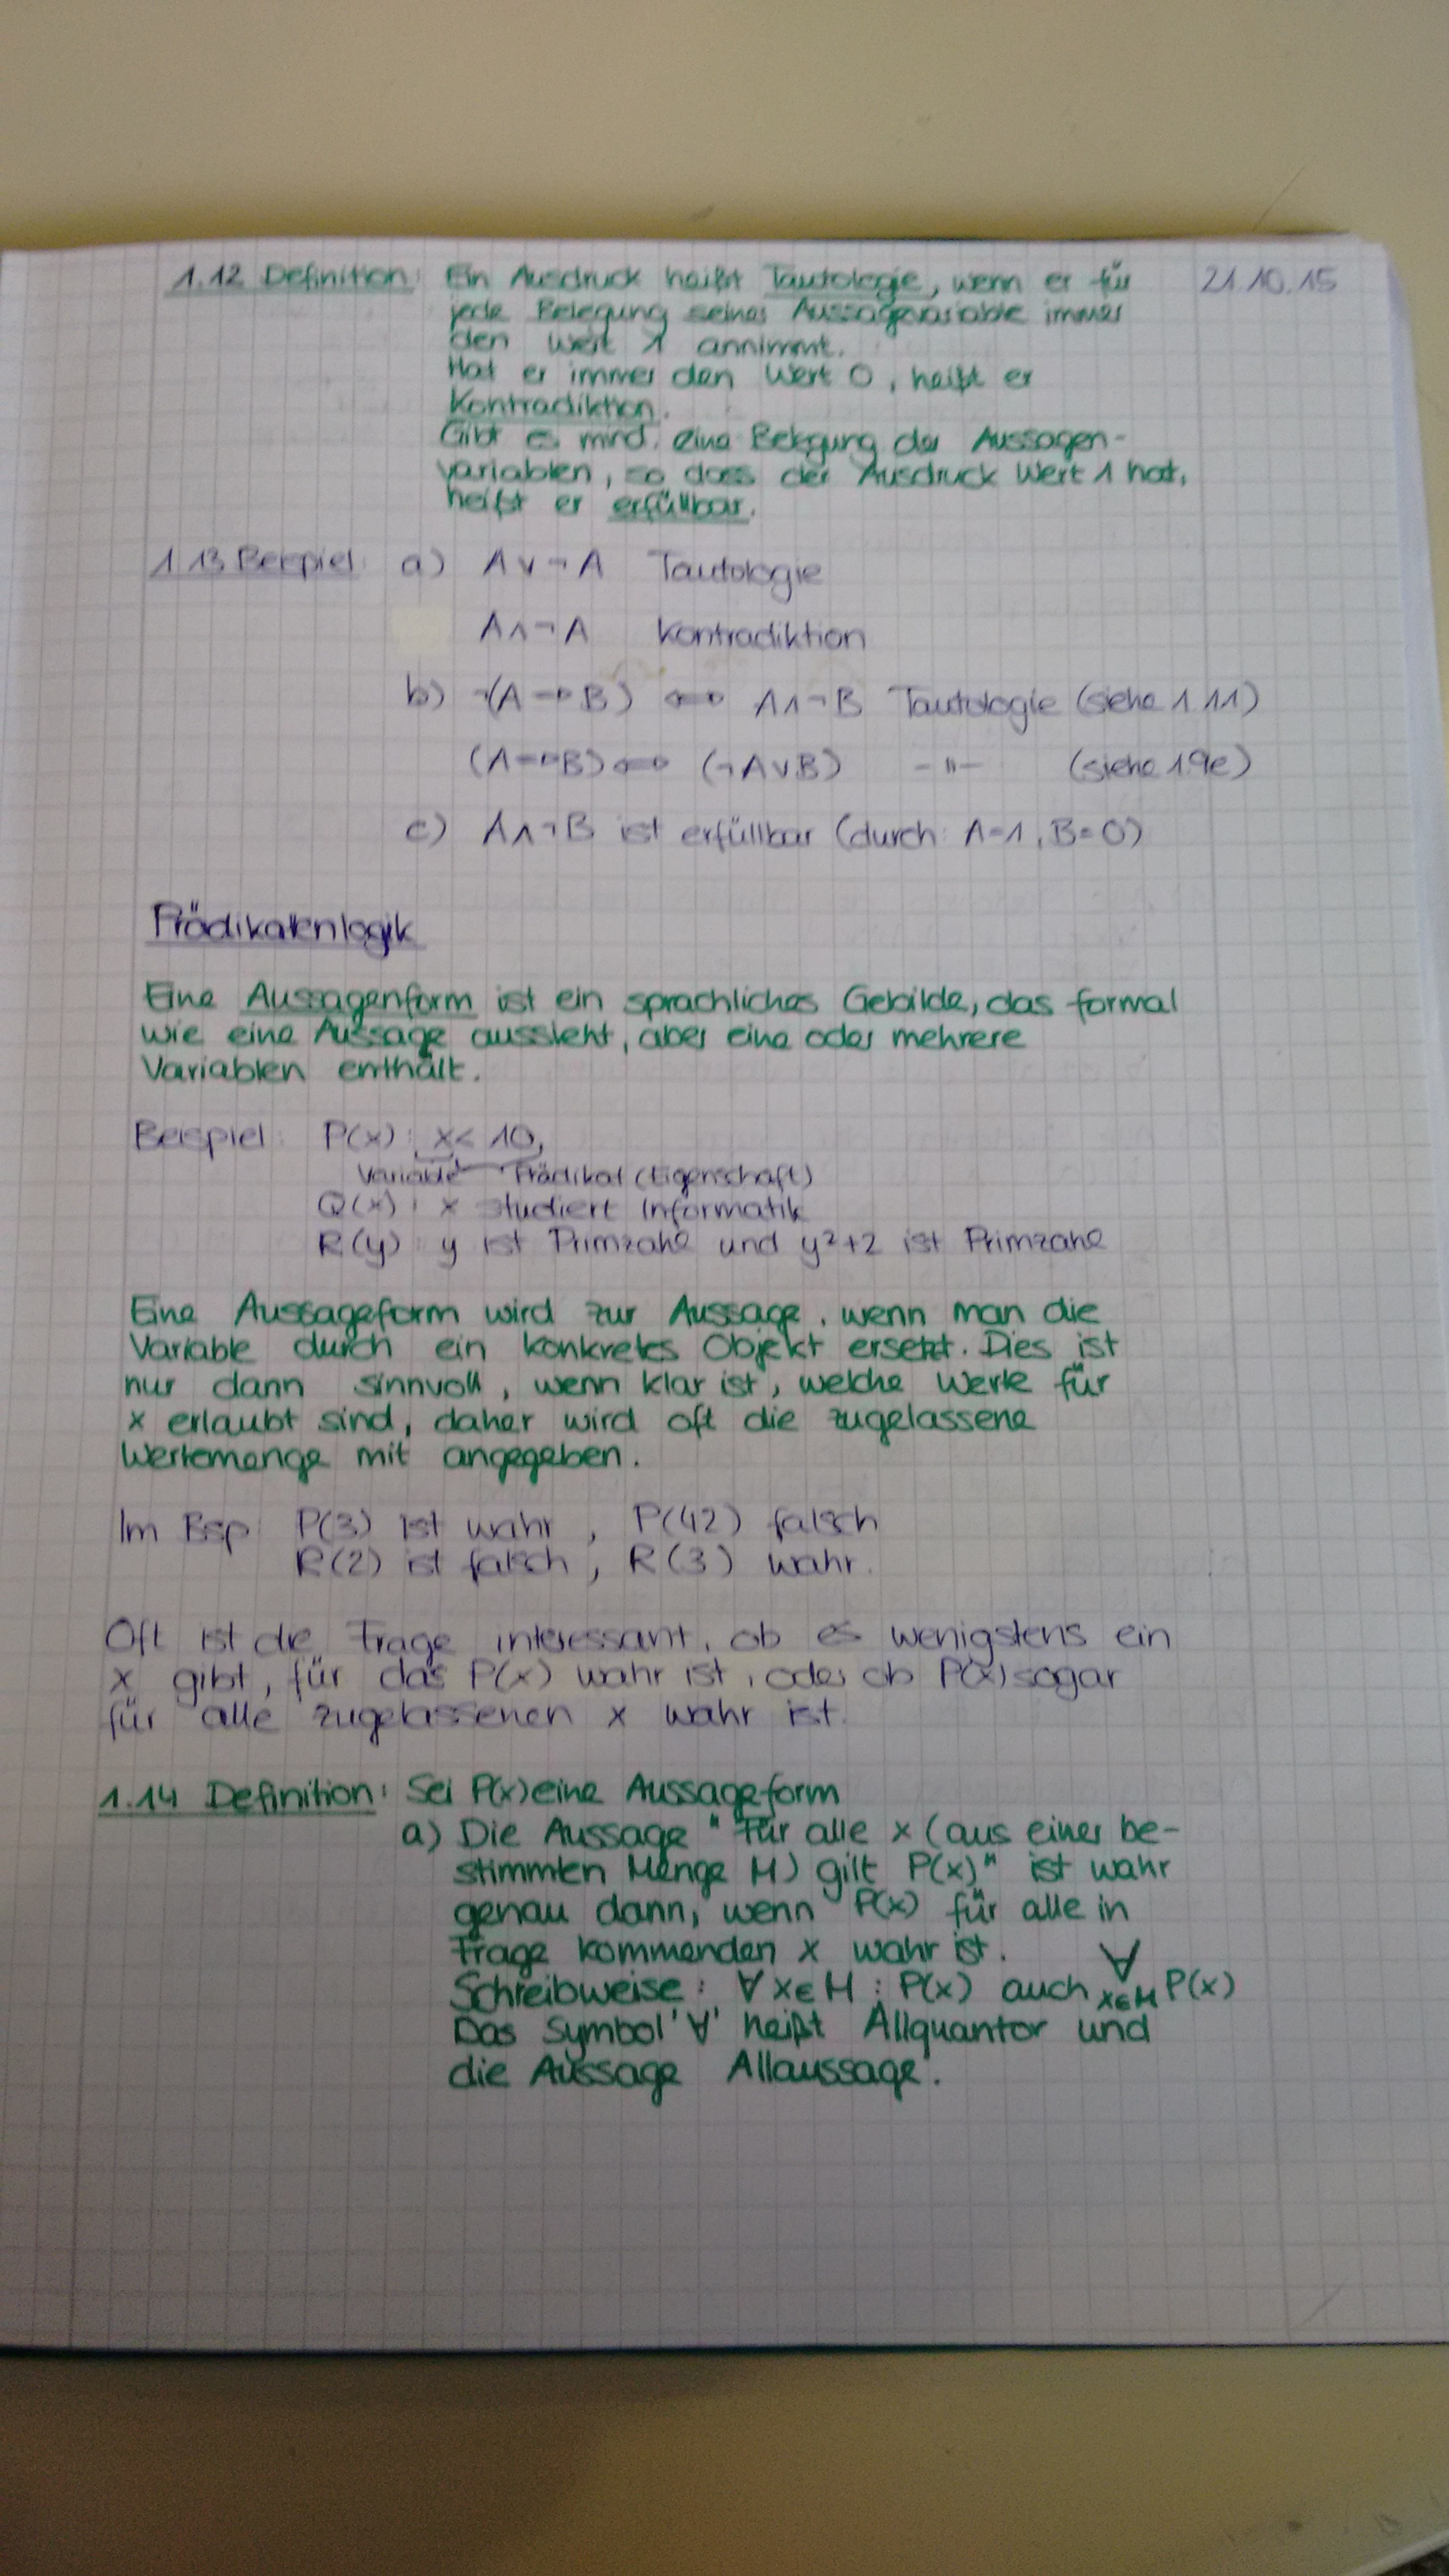 1.12 Definition: Ein Ausdruck heißt Tautologie, wenn er für 21.10.15
jede Belegung seiner Aussagevariable immer
den Wert 1 annimmt.
Hat er immer den Wert 0, heißt er
Kontradiktion.
Gibt es mind. eine Belegung der Aussagen-
variablen, so dass der Ausdruck Wert 1 hat,
heißt er erfüllbar.
1.13 Beispiel: a) A ∨ ¬A Tautologie
A ∧ ¬A Kontradiktion
b) ¬(A ⇒ B) ⇔ A ∧ ¬B Tautologie (siehe 1.11)
(A ⇒ B) ⇔ (¬A ∨ B) -"- (siehe 1.9e)
c) A ∧ ¬B ist erfüllbar (durch: A=1, B=0)
Prädikatenlogik
Eine Aussagenform ist ein sprachliches Gebilde, das formal
wie eine Aussage aussieht, aber eine oder mehrere
Variablen enthält.
Beispiel: P(x): x < 10,
Variable Prädikat (Eigenschaft)
Q(x): x studiert Informatik
R(y): y ist Primzahl und y²+2 ist Primzahl
Eine Aussageform wird zur Aussage, wenn man die
Variable durch ein konkretes Objekt ersetzt. Dies ist
nur dann sinnvoll, wenn klar ist, welche Werte für
x erlaubt sind, daher wird oft die zugelassene
Wertemenge mit angegeben.
Im Bsp: P(3) ist wahr, P(42) falsch
R(2) ist falsch, R(3) wahr.
Oft ist die Frage interessant, ob es wenigstens ein
x gibt, für das P(x) wahr ist, oder ob P(x) sogar
für alle zugelassenen x wahr ist.
1.14 Definition: Sei P(x) eine Aussageform
a) Die Aussage "Für alle x (aus einer be-
stimmten Menge M) gilt P(x)" ist wahr
genau dann, wenn P(x) für alle in
Frage kommenden x wahr ist.
Schreibweise: ∀ x∈M : P(x) auch ∀ x∈M P(x)
Das Symbol '∀' heißt Allquantor und
die Aussage Allaussage.